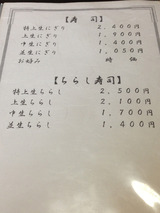 【寿司】
特上生にぎり 2,400円
上生にぎり 1,900円
中生にぎり 1,400円
並生にぎり 1,050円
お好み 時価
【ちらし寿司】
特上生ちらし 2,500円
上生ちらし 2,100円
中生ちらし 1,700円
並生ちらし 1,400円